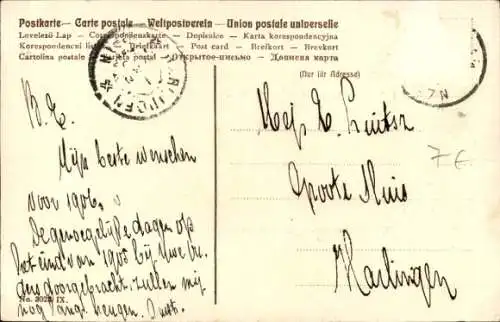 Postkarte — Carte postale — Weltpostverein — Union postale universelle
Levelező Lap — Correspondenzkarte — Dopisnice — Karta korespondencyjna
Korespondenční lístek — Briefkart — Post card — Brefkort — Brevkort
Cartolina postale — postale — Открытое письмо — Дописна карта
(Nur für Adresse)
B. E.
Mijn beste wenschen
voor 1906.
De genoegelijke dagen op
het eind van 1905 bij Uwe
doorgebracht zullen mij
nog lang heugen.
No. 302 IX.
Mej. E.
Groote
Harlingen
7 €
7N